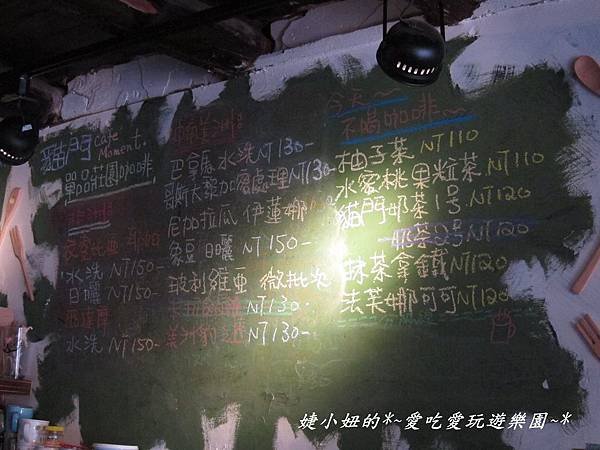 貓門 Cafe Moment.
單品莊園咖啡
非洲
水洗 NT150-
日曬 NT150-
水洗 NT150-
中南美洲
巴拿馬 水洗 NT130-
哥斯大黎加 蜜處理 NT130-
尼加拉瓜 伊蓮娜
象豆 日曬 NT150-
玻利維亞 微批次
NT130-
NT130-
今天~
不喝咖啡~
柚子茶 NT110
水蜜桃果粒茶 NT110
貓門奶茶1号 NT120
奶茶2号 NT120
抹茶拿鐵 NT120
法芙娜可可 NT120
婕小妞的*~愛吃愛玩遊樂園~*